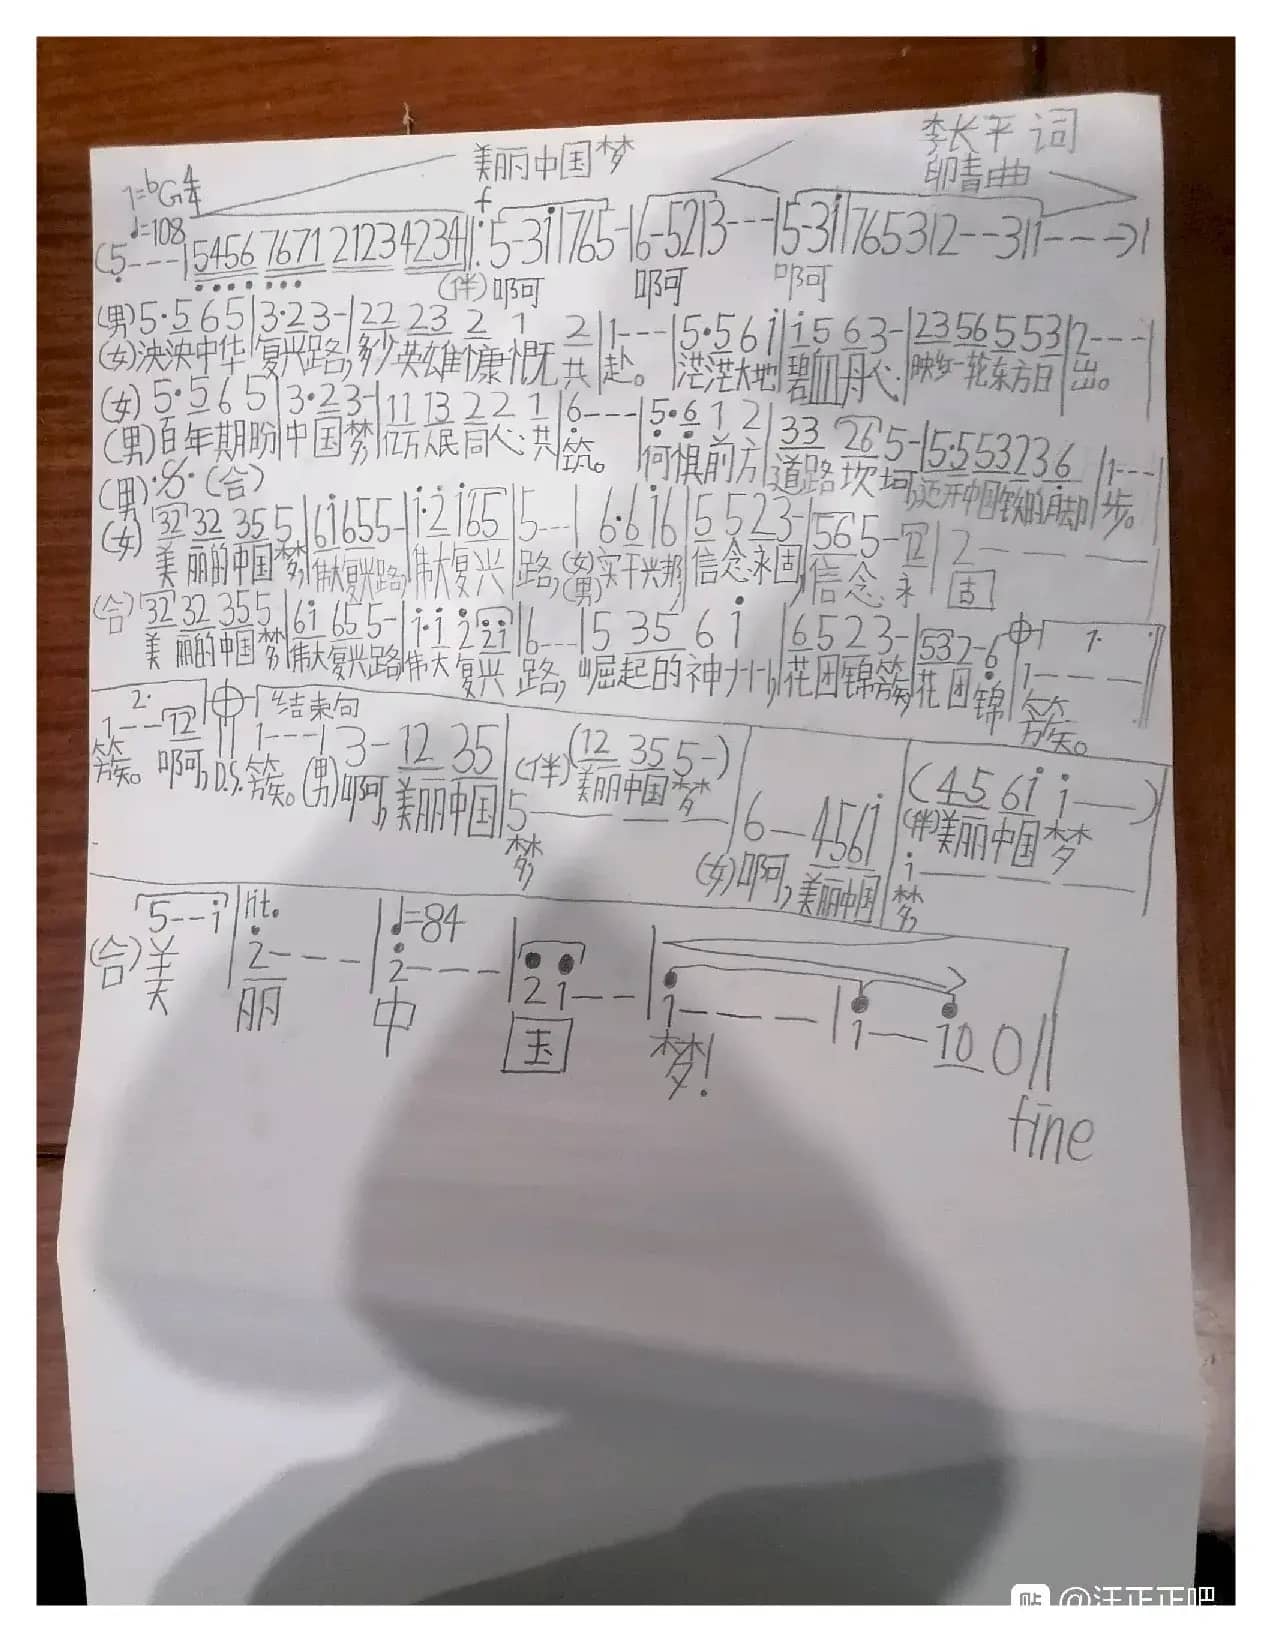 美丽中国梦
李长平 词
印青曲
1=bG 4/4
♩=108
f
(5---|5456 7671 2123 4234|‖:5-3i|765-|6-521|3---|5-3i|765312--311---)|
(伴)啊 啊 啊
(男)5·5 6 5|3·23-|22 23 2 1 2|1---|5·5 6 i|i 5 6 3-|23 56 5 53|2---|
(女)泱泱中华|复兴路,|多少英雄慷慨共|赴。|茫茫大地|碧血丹心,|映红一轮东方日|出。|
(女)5·5 6 5|3·23-|11 13 2 2 1|6---|5·6 1 2|33 26 5-|5·553236|1---|
(男)百年期盼|中国梦|亿万人民同心共|筑。|何惧前方|道路坎坷,|迈开中国铁的脚|步。
(男)·𝄋·(合)
(女)32 32 35 5|6i655-|i·2 i65|5---|6·6 i6|5 523-|565-12|2---
美丽的中国梦,|伟大复兴路,|伟大复兴|路,(女)(男)实干兴邦,|信念永固,|信念永|固
(合)32 32 35 5|6i 65 5-|i·i 2 2i|6---|5 35 6 i|6 5 2 3-|532-6|1---
1.
美丽的中国梦,|伟大复兴路,|伟大复兴|路,|崛起的神州,|花团锦簇,|花团锦|簇。
2. 结束句
1---12|‖1---|3- 12 35|(伴)(12 35 5-)
簇。啊,D.S.簇。(男)啊,美丽中国|美丽中国梦
5---
梦,
6- 4561|(4561 i-)
(女)啊,美丽中国|(伴)美丽中国梦
i---
梦,
rit. ♩=84
5--i|2---|2---|2 1--|1---|1- 10 0‖
(合)美|丽|中|国|梦!
fine
贴 @汪正正吧